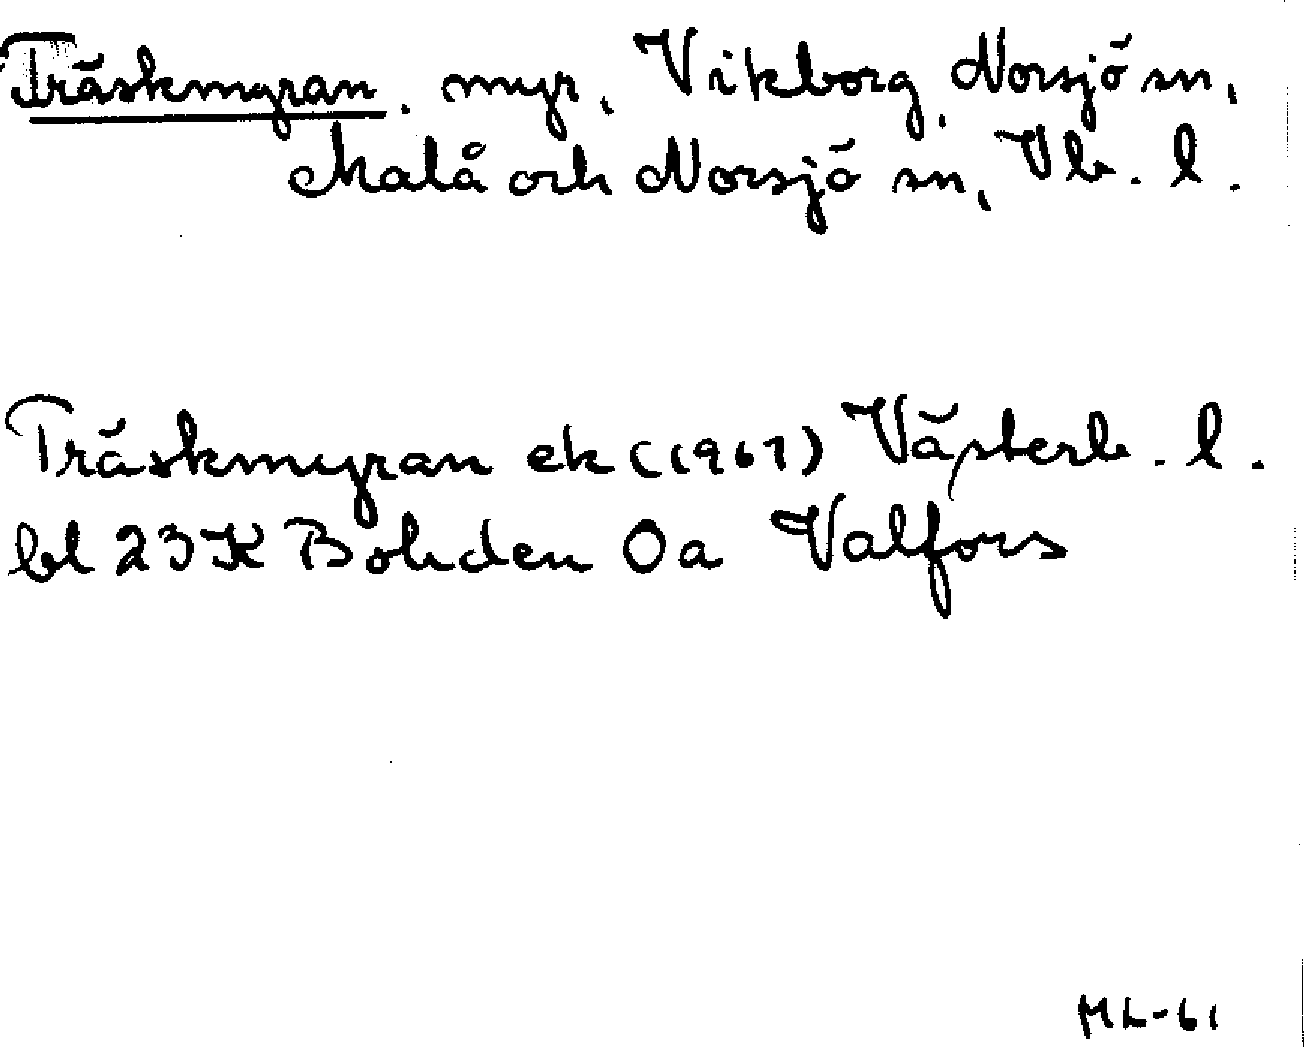 Träskmyran, myr, Vikborg, Norsjö sn,
Malå och Norsjö sn, Vb. l.
Träskmyran ek (1961) Västerb. l.
bl 23K Boliden 0a Valfors
ML-61